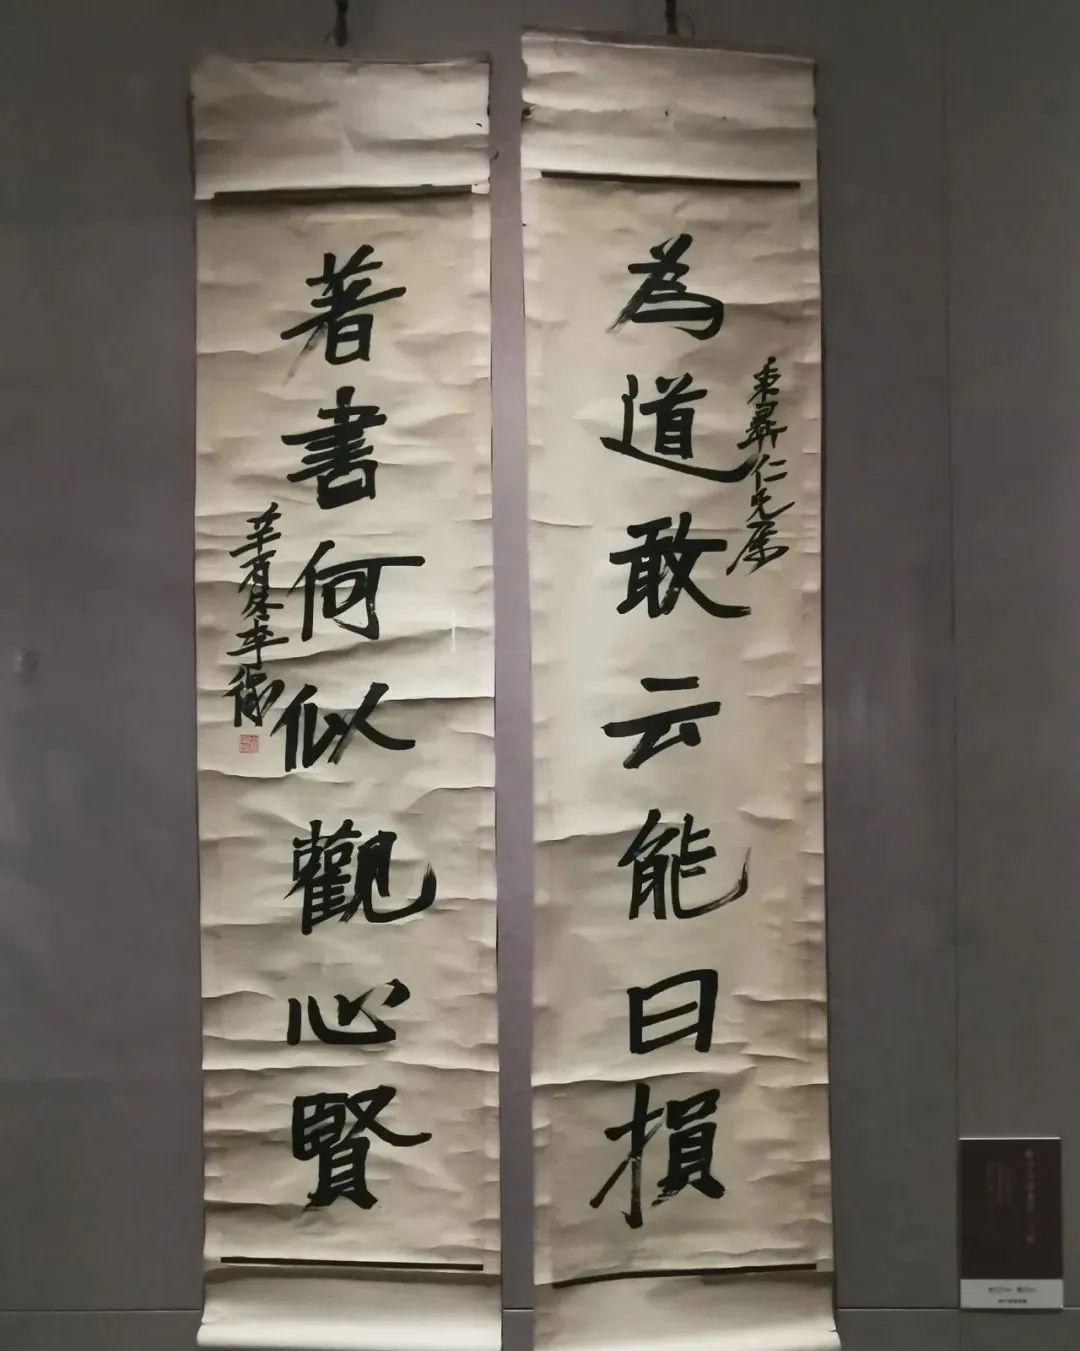 為道敢云能日損
秉彝仁兄屬
著書何似觀心賢
辛酉冬李